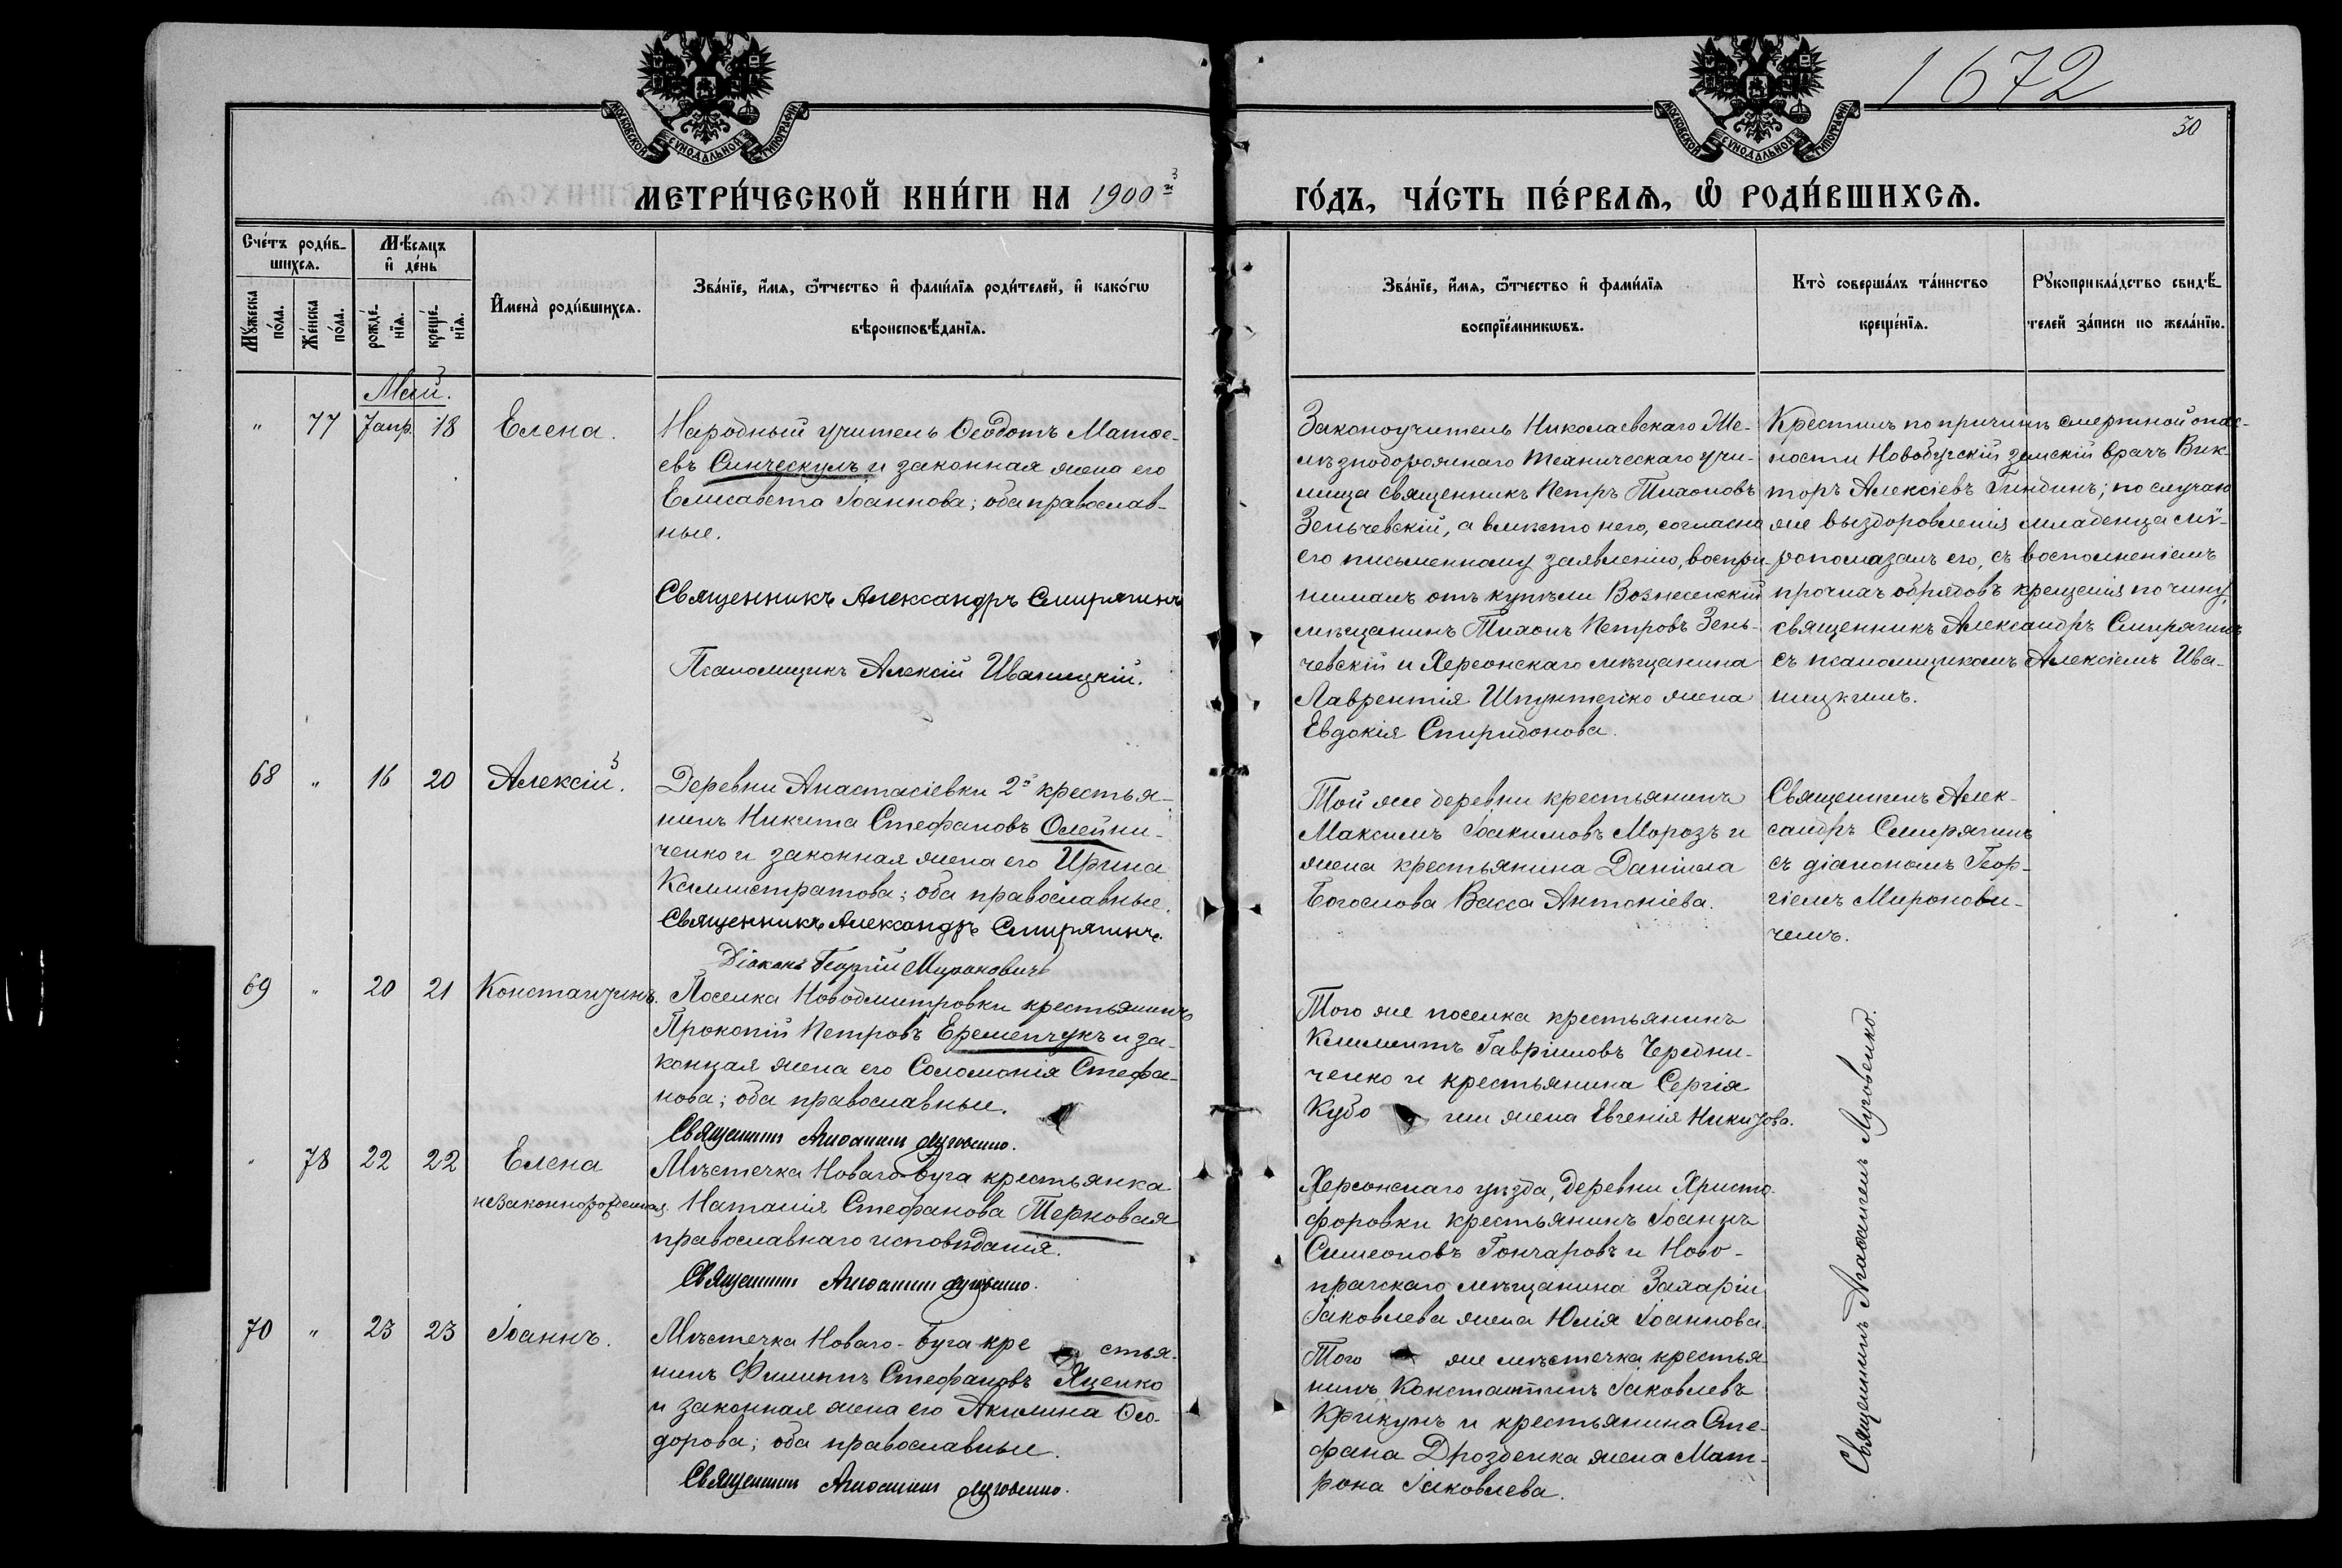 1672
30
МОСКОВСКОЙ СУНОДАЛЬНОЙ ТИПОГРАФІИ
МОСКОВСКОЙ СУНОДАЛЬНОЙ ТИПОГРАФІИ
МЕТРИ́ЧЕСКОЙ КНИ́ГИ НА 1900й
ГО́ДЪ, ЧА́СТЬ ПЕ́РВАѦ, Ѡ҆ РОДИ́ВШИХСѦ.
Сче́тъ роди́в-
шихсѧ.
Мѣ́сѧцъ
и҆ де́нь
Мꙋ́жеска по́ла.
Же́нска по́ла.
рожде́-
нїѧ.
креще́-
нїѧ.
И҆мена̀ роди́вшихсѧ.
Зва́нїе, и҆́мѧ, ѻ҆́тчество и҆ фами́лїѧ роди́телей, и҆ како́гѡ
вѣроисповѣ́данїѧ.
Зва́нїе, и҆́мѧ, ѻ҆́тчество и҆ фами́лїѧ
воспрїе́мникѡвъ.
Кто̀ соверша́лъ та́инство
креще́нїѧ.
Рꙋкоприкла́дство свидѣ́-
телей за́писи по жела́нїю.
Май.
" 77 7апр. 18 Елена.
Народный учитель Ѳеодотъ Матѳе-
евъ Синческулъ и законная жена его
Елисавета Іоаннова; оба православ-
ные.
Священникъ Александръ Смирягинъ
Псаломщикъ Алексій Иваницкій.
Законоучитель Николаевскаго Же-
лѣзнодорожнаго техническаго учи-
лища священникъ Петръ Тихоновъ
Зеньчевскій, а вмѣсто него, согласно
его письменному заявленію, воспри-
нималъ отъ купѣли Вознесенскій
мѣщанинъ Тихонъ Петровъ Зень-
чевскій и Херсонскаго мѣщанина
Лаврентія Шпунтенко жена
Евдокія Спиридонова.
Крестилъ по причинѣ смертной опас-
ности Новобугскій земскій врачъ Вик-
торъ Алексіевъ Гиндинъ; по случаю
же выздоровленія младенца мѵ-
ропомазалъ его, съ восполненіемъ
прочихъ обрядовъ крещенія по чину,
священникъ Александръ Смирягинъ
съ псаломщикомъ Алексіемъ Ива-
ницкимъ.
68 " 16 20 Алексій.
Деревни Анастасіевки 2й крестья-
нинъ Никита Стефановъ Олейни-
ченко и законная жена его Ирина
Каллистратова; оба православные.
Священникъ Александръ Смирягинъ.
Діаконъ Георгій Мироновичъ
Той же деревни крестьянинъ
Максимъ Іоакимовъ Морозъ и
жена крестьянина Даніила
Богослова Васса Антоніева.
Священникъ Алек-
сандръ Смирягинъ
съ діакономъ Геор-
гіемъ Миронови-
чемъ.
69 " 20 21 Константинъ.
Поселка Новодмитровки крестьянинъ
Прокопій Петровъ Еременчукъ и за-
конная жена его Соломонія Стефа-
нова; оба православные.
Священникъ Агаѳангелъ Луговенко.
Того же поселка крестьянинъ
Климентъ Гавріиловъ Чередни-
ченко и крестьянина Сергія
Кубо жена Евгенія Никитова.
" 78 22 22 Елена
незаконнорожденная
Мѣстечка Новаго-Буга крестьянка
Наталія Стефанова Терновая
православнаго исповѣданія.
Священникъ Агаѳангелъ Луговенко.
Херсонскаго уѣзда, деревни Христо-
форовки крестьянинъ Іоаннъ
Симеоновъ Гончаровъ и Ново-
прагскаго мѣщанина Захаріи
Іаковлева жена Юлія Іоаннова.
70 " 23 23 Іоаннъ.
Мѣстечка Новаго-Буга кре стья-
нинъ Филиппъ Стефановъ Яценко
и законная жена его Акилина Ѳео-
дорова; оба православные.
Священникъ Агаѳангелъ Луговенко.
Того же мѣстечка крестья-
нинъ Константинъ Іаковлевъ
Крикунъ и крестьянина Сте-
фана Дрозденка жена Мат-
рона Іаковлева.
Священникъ Агаѳангелъ Луговенко.